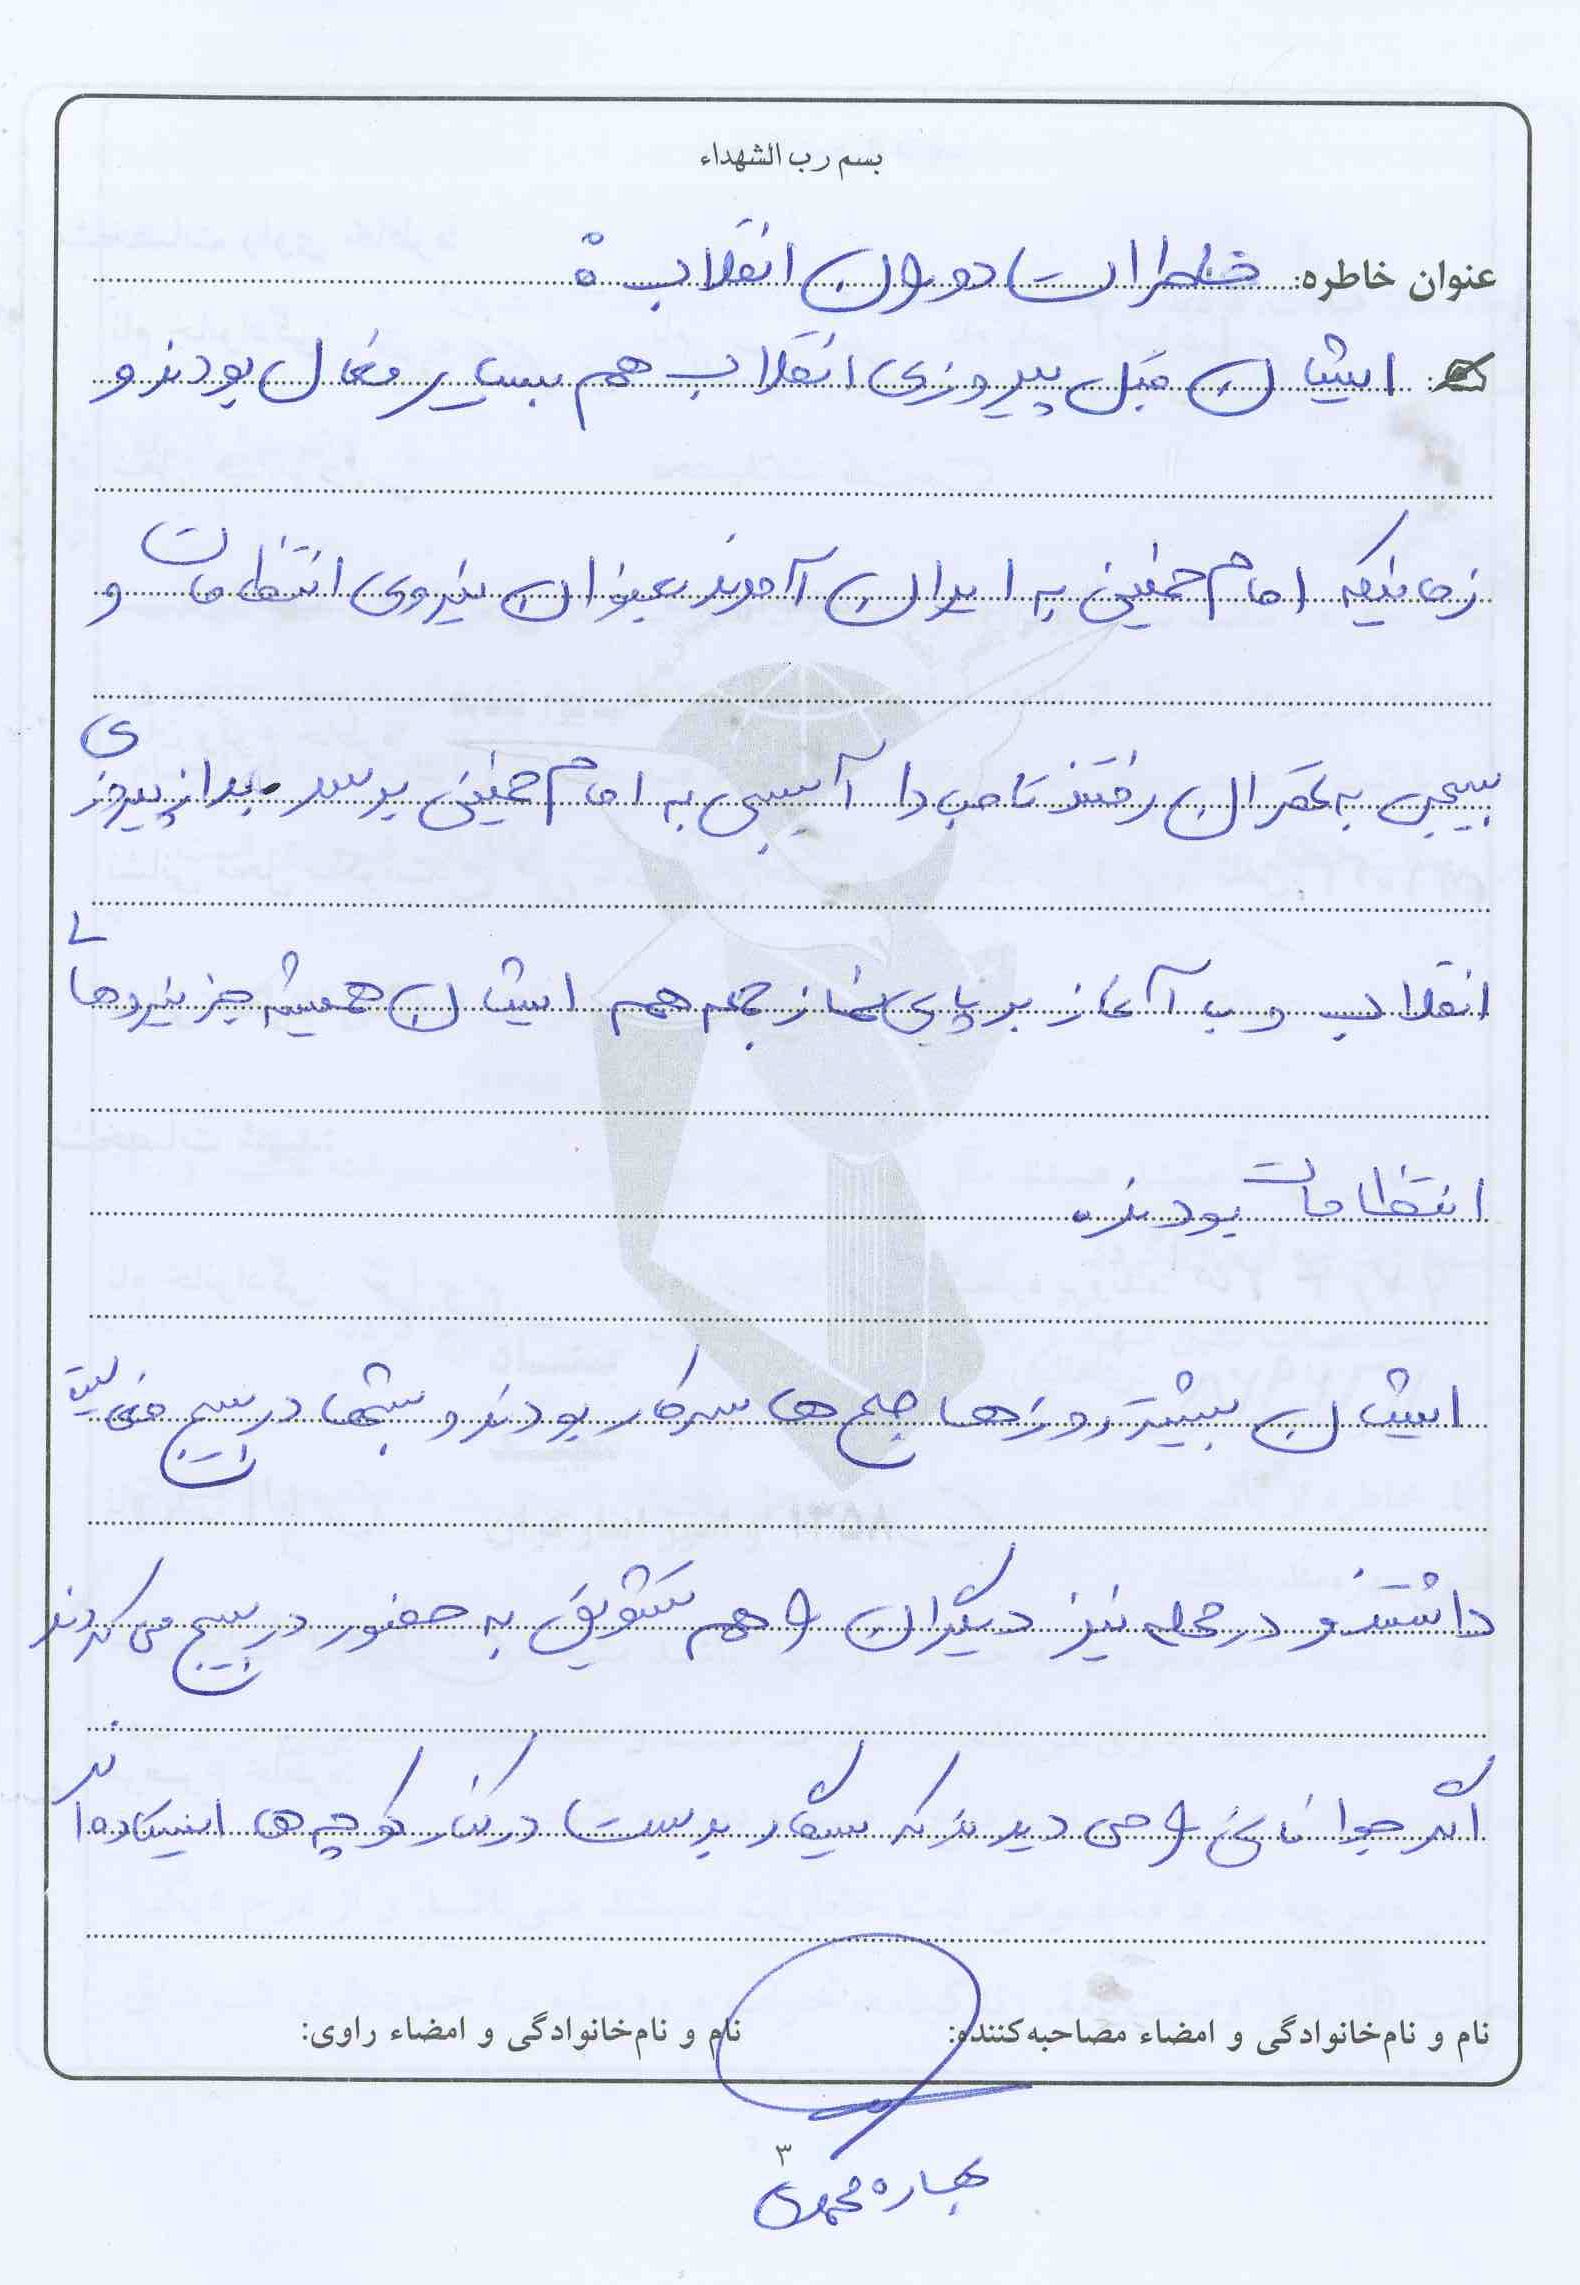 بسم رب الشهداء
عنوان خاطره: خاطرات دوران انقلاب ه
ایشان قبل پیروزی انقلاب هم بسیار فعال بودند و
زمانیکه امام خمینی به ایران آمدند بعنوان نیروی انتظامات و
بسیجی به تهران رفتند تا مبادا آسیبی به امام خمینی برسد. بعد از پیروزی
انقلاب و با آغاز برپایی نماز جمعه هم ایشان همیشه جز نیروهای
انتظامات بودند.
ایشان بیشتر روزها صبح ها سرکار بودند و شبها در بسیج فعالیت
داشتند و در محله نیز دیگران را هم تشویق به حضور در بسیج می کردند
اگر جوانانی را می دیدند که سیگار بدست در کنار کوچه ها ایستاده اند
نام و نام‌خانوادگی و امضاء مصاحبه‌کننده: نام و نام‌خانوادگی و امضاء راوی:
۳
بهاره محمدی